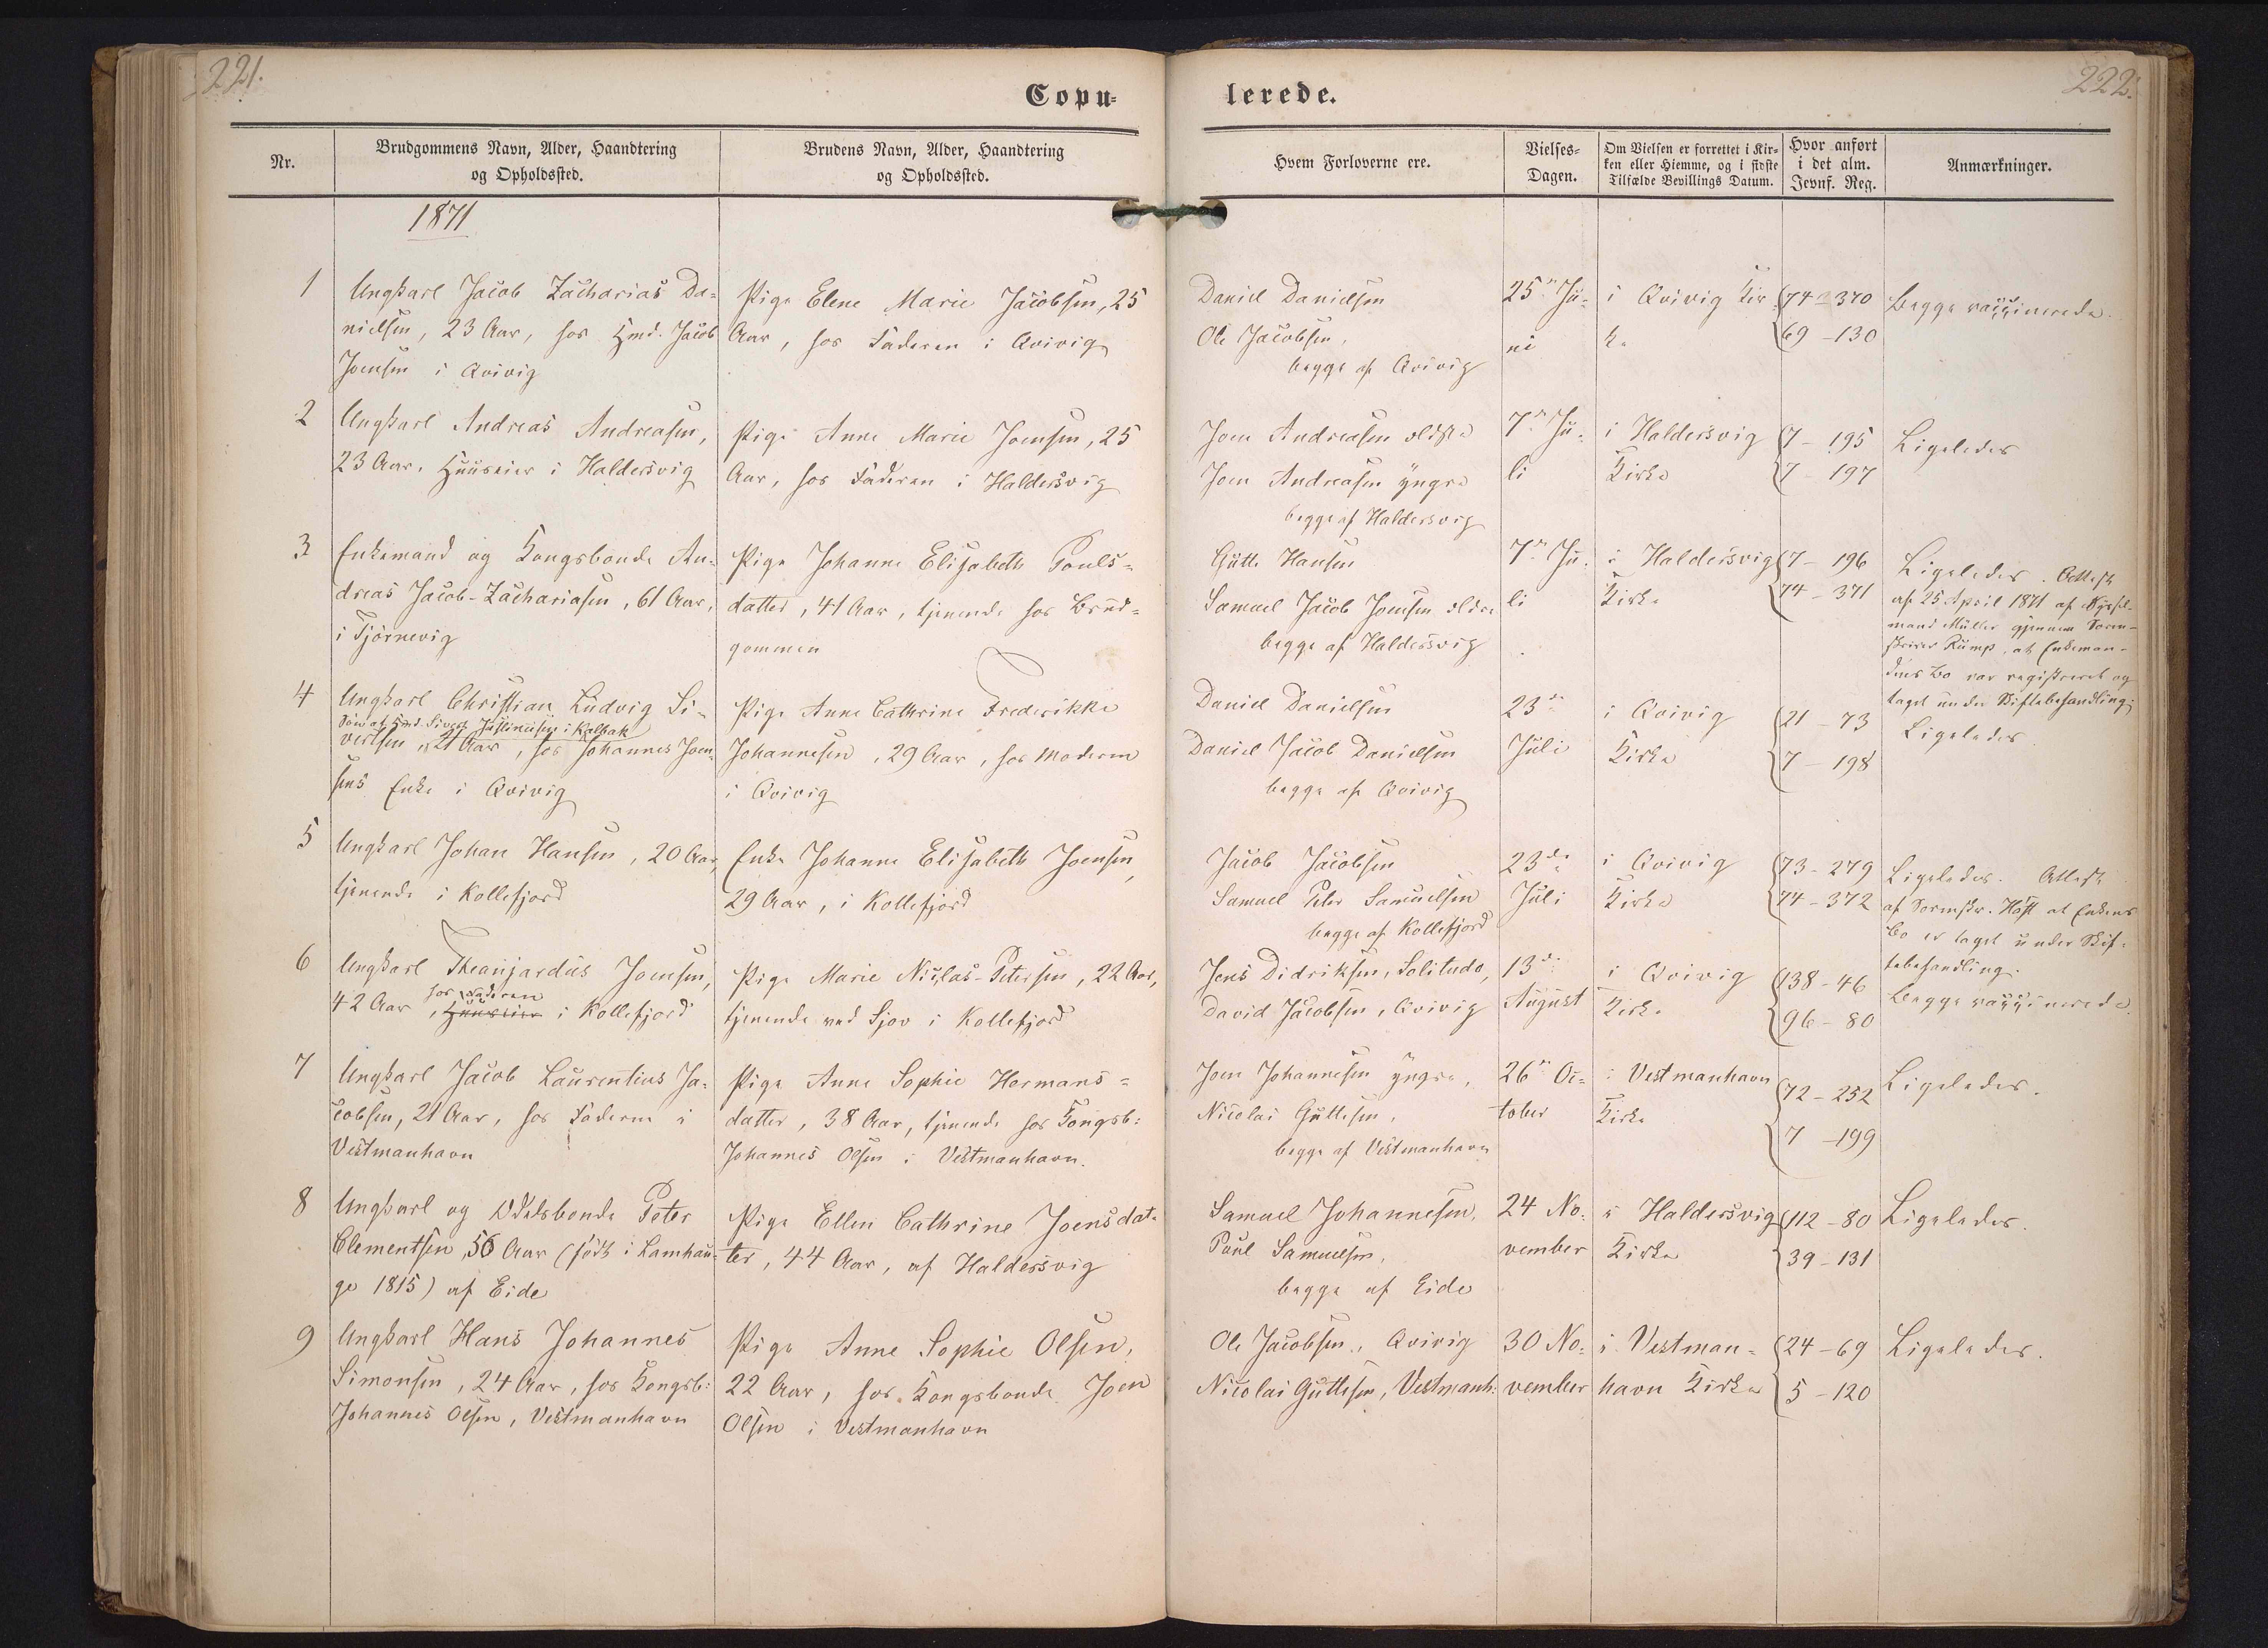 221.
222.
Copu-
lerede.
Nr.
Brudgommens Navn, Alder, Haandtering
og Opholdssted.
Brudens Navn, Alder, Haandtering
og Opholdssted.
Hvem Forloverne ere.
Vielses-
Dagen.
Om Vielsen er forrettet i Kir-
ken eller Hiemme, og i sidste
Tilfælde Bevillings Datum.
Hvor anført
i det alm.
Jevnf. Reg.
Anmærkninger.
1871
1
Ungkarl Jacob Zacharias Da-
nielsen, 23 Aar, hos Hmd. Jacob
Joensen i Qvivig
Pige Elene Marie Jacobsen, 25
Aar, hos Faderen i Qvivig
Daniel Danielsen
Ole Jacobsen,
begge af Qvivig
25de Ju-
ni
i Qvivig Kir-
ke
74-370
69-130
Begge vaccinerede.
2
Ungkarl Andreas Andreasen,
23 Aar, Huuseier i Haldersvig
Pige Anne Marie Joensen, 25
Aar, hos Faderen i Haldersvig
Joen Andreasen ældste
Joen Andreasen yngre
begge af Haldersvig
7de Ju-
li
i Haldersvig
Kirke
7-195
7-197
Ligeledes
3
Enkemand og Kongsbonde An-
dreas Jacob-Zachariasen, 61 Aar,
i Tjörnevig
Pige Johanne Elisabeth Pouls-
datter, 41 Aar, tjenende hos Brud-
gommen
Gutte Hansen
Samuel Jacob Joensen ældre
begge af Haldersvig
7de Ju-
li
i Haldersvig
Kirke
7-196
74-371
Ligeledes. Attest
af 25 April 1871 af Syssel-
mand Müller gjennem Soren-
skriver Rump, at Enkeman-
dens Bo var registreret og
taget under Skiftebehandling.
4
Ungkarl Christian Ludvig Si-
Søn af Hmd. Sivert Justinusen i Kalbak
vertsen, 21 Aar, hos Johannes Joen-
sens Enke i Qvivig
Pige Anne Cathrine Frederikke
Johannesen, 29 Aar, hos Moderen
i Qvivig
Daniel Danielsen
Daniel Jacob Danielsen
begge af Qvivig
23de
Juli
i Qvivig
Kirke
21-73
7-198
Ligeledes
5
Ungkarl Johan Hansen, 20 Aar,
tjenende i Kollefjord
Enke Johanne Elisabeth Joensen,
29 Aar, i Kollefjord
Jacob Jacobsen
Samuel Peter Samuelsen
begge af Kollefjord
23de
Juli
i Qvivig
Kirke
73-279
74-372
Ligeledes. Attest
af Sorenskr. Høst at Enkens
Bo er taget under Skif-
tebehandling.
6
Ungkarl Joensen,
hos Faderen
42 Aar, Huuseier i Kollefjord
Pige Marie Niclas-Petersen, 22 Aar,
tjenende ved Sjov i Kollefjord
Jens Didriksen, Solitude,
David Jacobsen, Qvivig
13de
August
i Qvivig
Kirke
138-46
96-80
Begge vaccinerede.
7
Ungkarl Jacob Laurentius Ja-
cobsen, 21 Aar, hos Faderen i
Vestmanhavn
Pige Anne Sophie Hermans-
datter, 38 Aar, tjenende hos Kongsb:
Johannes Olsen i Vestmanhavn.
Joen Johannesen yngre,
Nicolai Guttesen,
begge af Vestmanhavn
26de Oc-
tober
i Vestmanhavn
Kirke
72-252
7-199
Ligeledes.
8
Ungkarl og Odelsbonde Peter
Clementsen, 56 Aar (født i Lamhau-
ge 1815) af Eide
Pige Ellen Cathrine Joensdat-
ter, 44 Aar, af Haldersvig
Samuel Johannesen,
Poul Samuelsen,
begge af Eide
24 No-
vember
i Haldersvig
Kirke
112-80
39-131
Ligeledes.
9
Ungkarl Hans Johannes
Simonsen, 24 Aar, hos Kongsb:
Johannes Olsen, Vestmanhavn
Pige Anne Sophie Olsen,
22 Aar, hos Kongsbonde Joen
Olsen i Vestmanhavn
Ole Jacobsen, Qvivig
Nicolai Guttesen, Vestmanh:
30 No-
vember
i Vestman-
havn Kirke
24-69
5-120
Ligeledes.